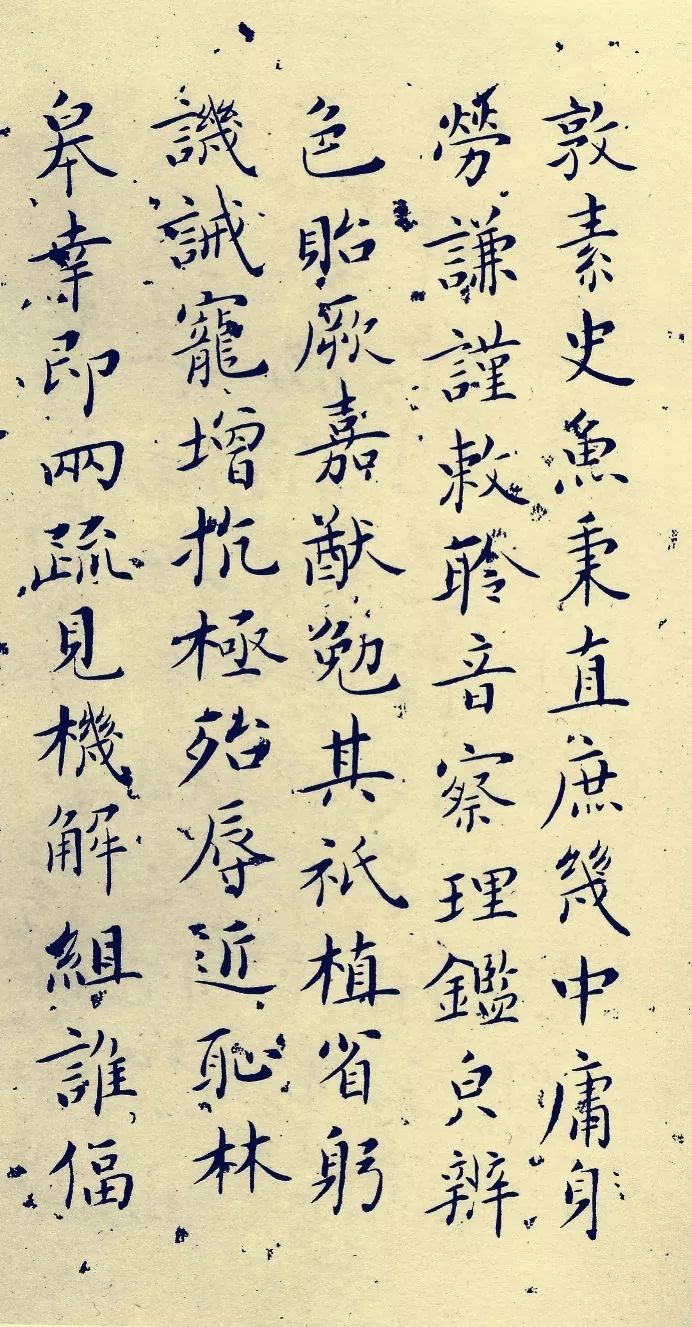 敦素史魚秉直庶幾中庸身
勞謙謹敕聆音察理鑑皃辨
色貽厥嘉猷勉其祇植省躬
譏誡寵增抗極殆辱近恥林
皋幸即兩疏見機解組誰偪